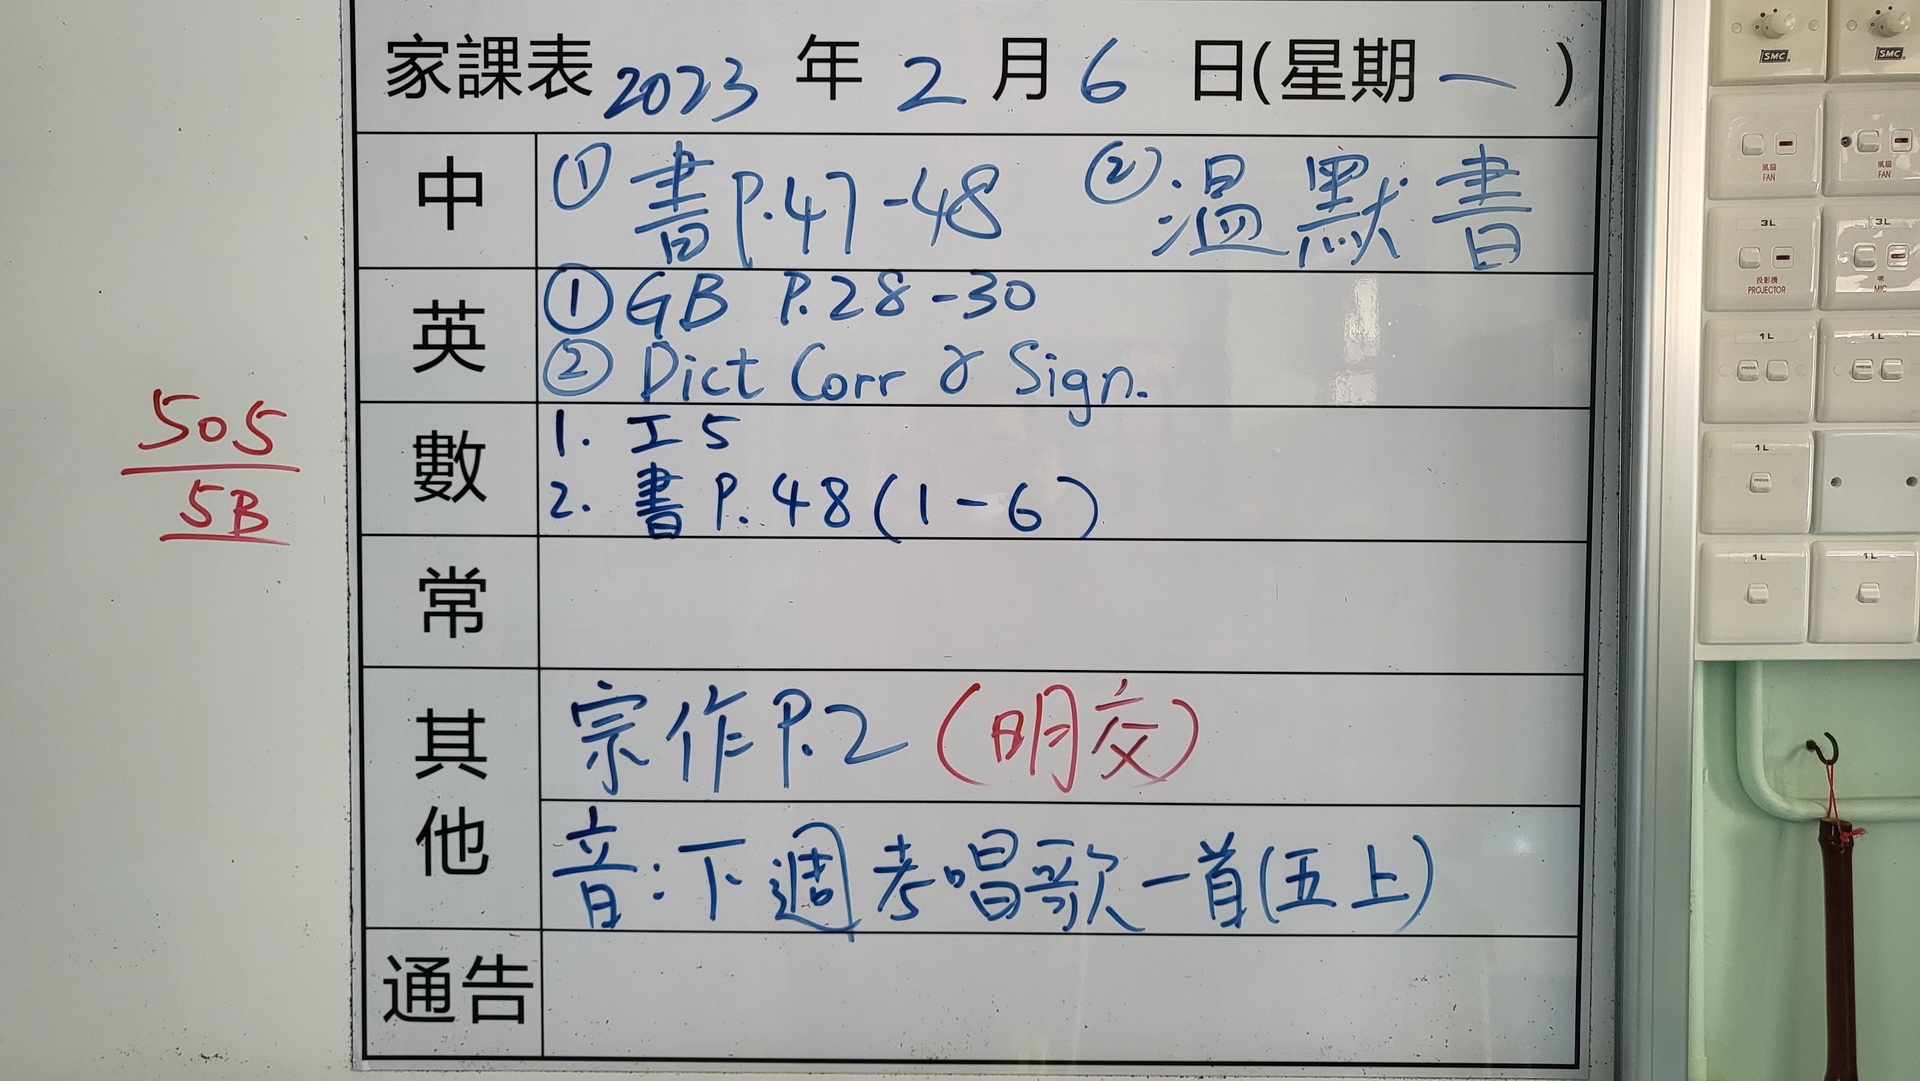 家課表 2023 年 2 月 6 日(星期 一 )
中 ① 書 P.47-48 ② 温 默 書
英 ① GB P.28-30
② Dict Corr & Sign.
數 1. 工 5
2. 書 P.48 (1-6)
常
其他 宗作 P.2 (明交)
音:下週考唱歌一首(五上)
通告
505
5B
SMC
SMC
風扇
FAN
風扇
FAN
3L
3L
投影機
PROJECTOR
MIC
1L
1L
PRESS
PRESS
1L
PRESS
1L
1L